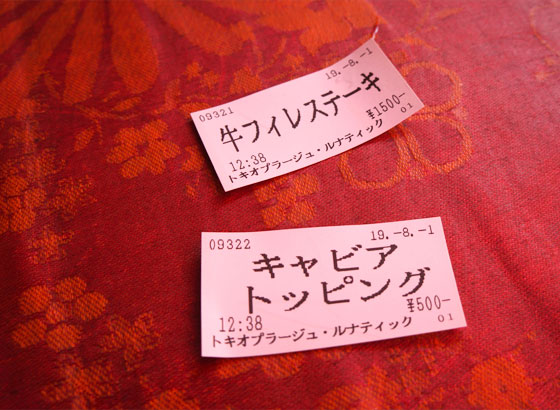 09321 19.-8.-1
牛フィレステーキ
¥1500-
12:38 01
トキオプラージュ・ルナティック
09322 19.-8.-1
キャビア
トッピング
¥500-
12:38 01
トキオプラージュ・ルナティック